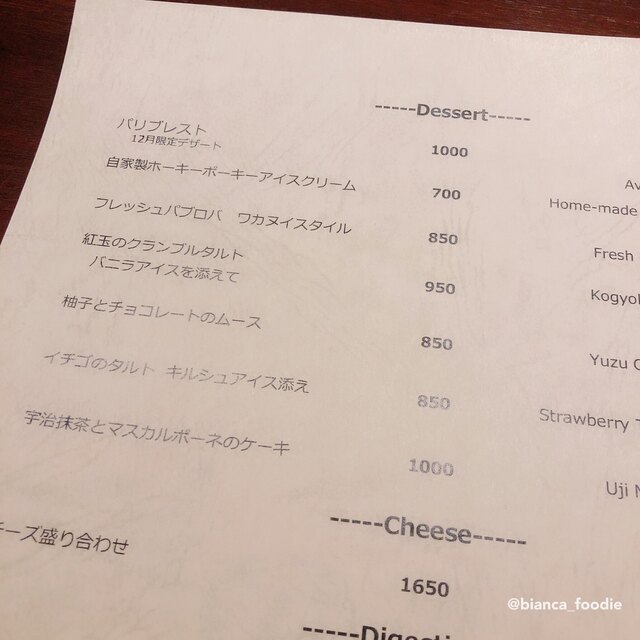 -----Dessert-----
パリブレスト 1000
12月限定デザート
自家製ホーキーポーキーアイスクリーム 700 Home-made
フレッシュパブロバ ワカヌイスタイル 850 Fresh
紅玉のクランブルタルト
バニラアイスを添えて 950
柚子とチョコレートのムース 850 Yuzu
イチゴのタルト キルシュアイス添え 850 Strawberry
宇治抹茶とマスカルポーネのケーキ 1000 Uji
-----Cheese-----
チーズ盛り合わせ 1650
@bianca_foodie